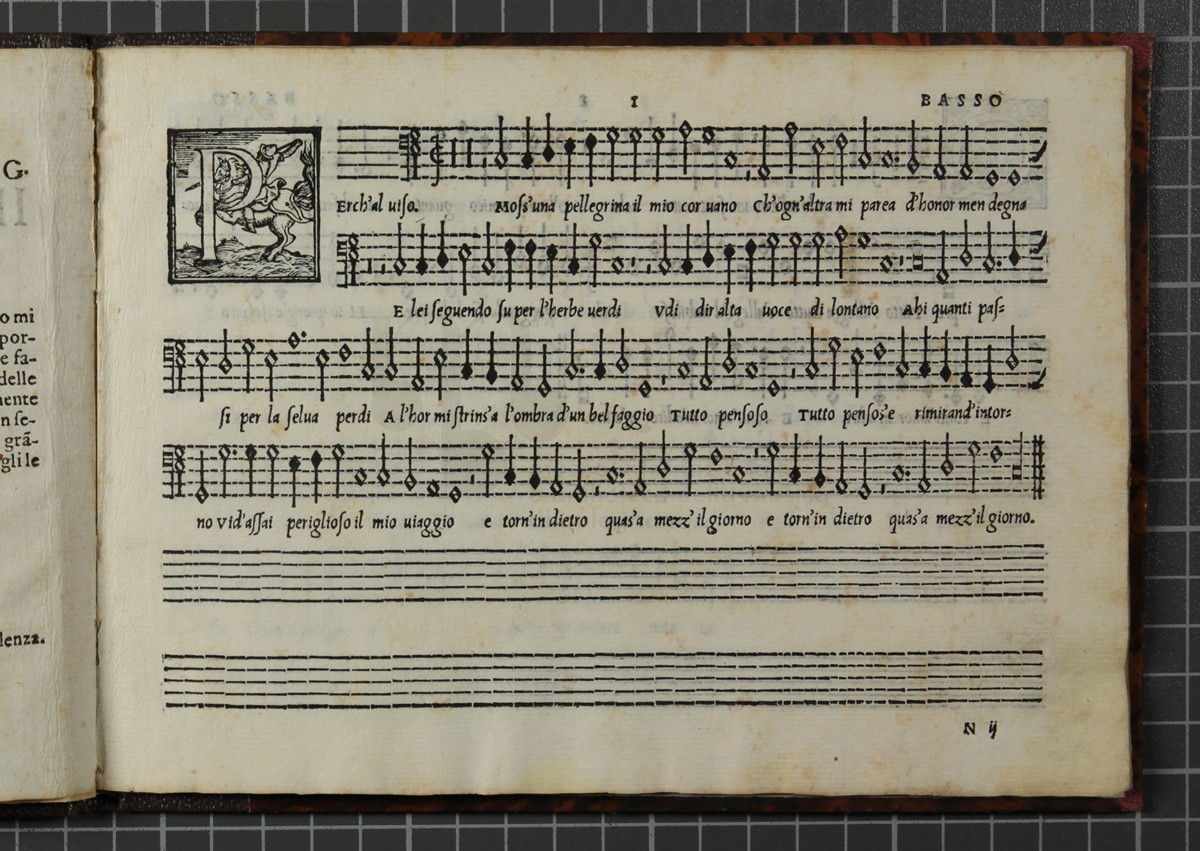 G.
o mi
por-
e fa-
delle
nente
n se-
grã-
gli le
lenza.
1 BASSO
PErch'al uiso. Moss'una pellegrina il mio cor uano Ch'ogn'altra mi parea d'honor men degna
E lei seguendo su per l'herbe uerdi Vdi dir alta uoce di lontano Ahi quanti pas=
si per la selua perdi A l'hor mi strins'a l'ombra d'un bel faggio Tutto pensoso Tutto pensos'e rimirand'intor=
no Vid'assai periglioso il mio uiaggio e torn'in dietro quas'a mezz'il giorno e torn'in dietro quas'a mezz'il giorno.
N ij